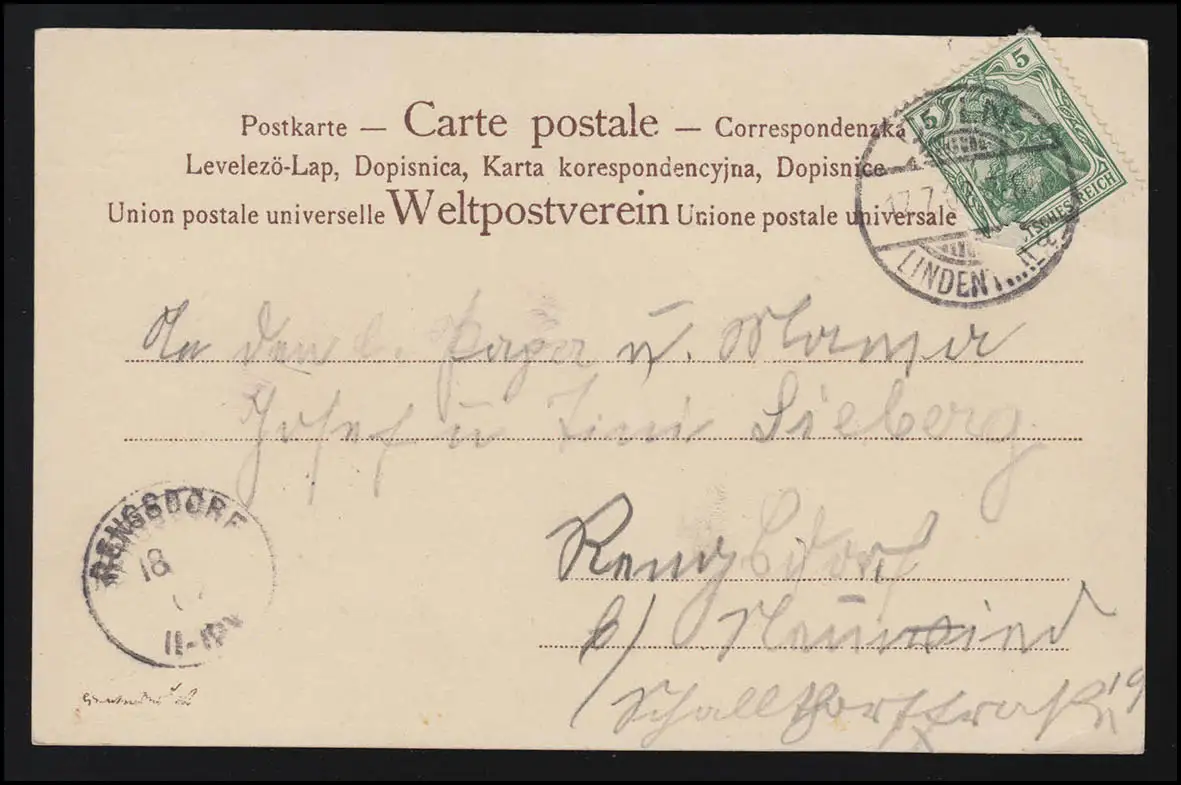 Postkarte — Carte postale — Correspondenzka
Levelezö-Lap, Dopisnica, Karta korespondencyjna, Dopisnice
Union postale universelle Weltpostverein Unione postale universale
5 5
TSCHES REICH
17.7.
LINDENT
An den l. Papa u. Mama
Josef u Tini Sieberg
Rengsdorf
b/ Neuwied
Schallthorstraße 19
RENGSDORF
18
11-12V